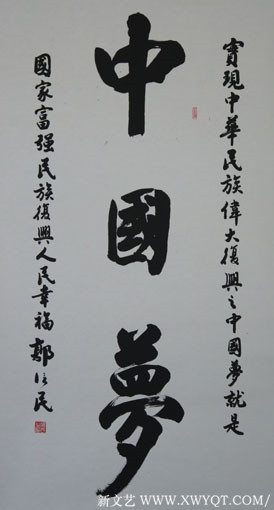 實現中華民族偉大復興之中國夢就是
中國夢
國家富强民族復興人民幸福 鄭信民
新文艺 WWW.XWYQT.COM